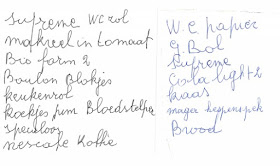 supreme WC rol
makreel in tomaat
Bio form 2
Boulon Blokjes
keukenrol
koekjes pum Bloedstelper
speculoos
nescafe Koffie
W.C papier
G. Bol
supreme
Cola light + 2
kaas
mager kippenspek
Brood